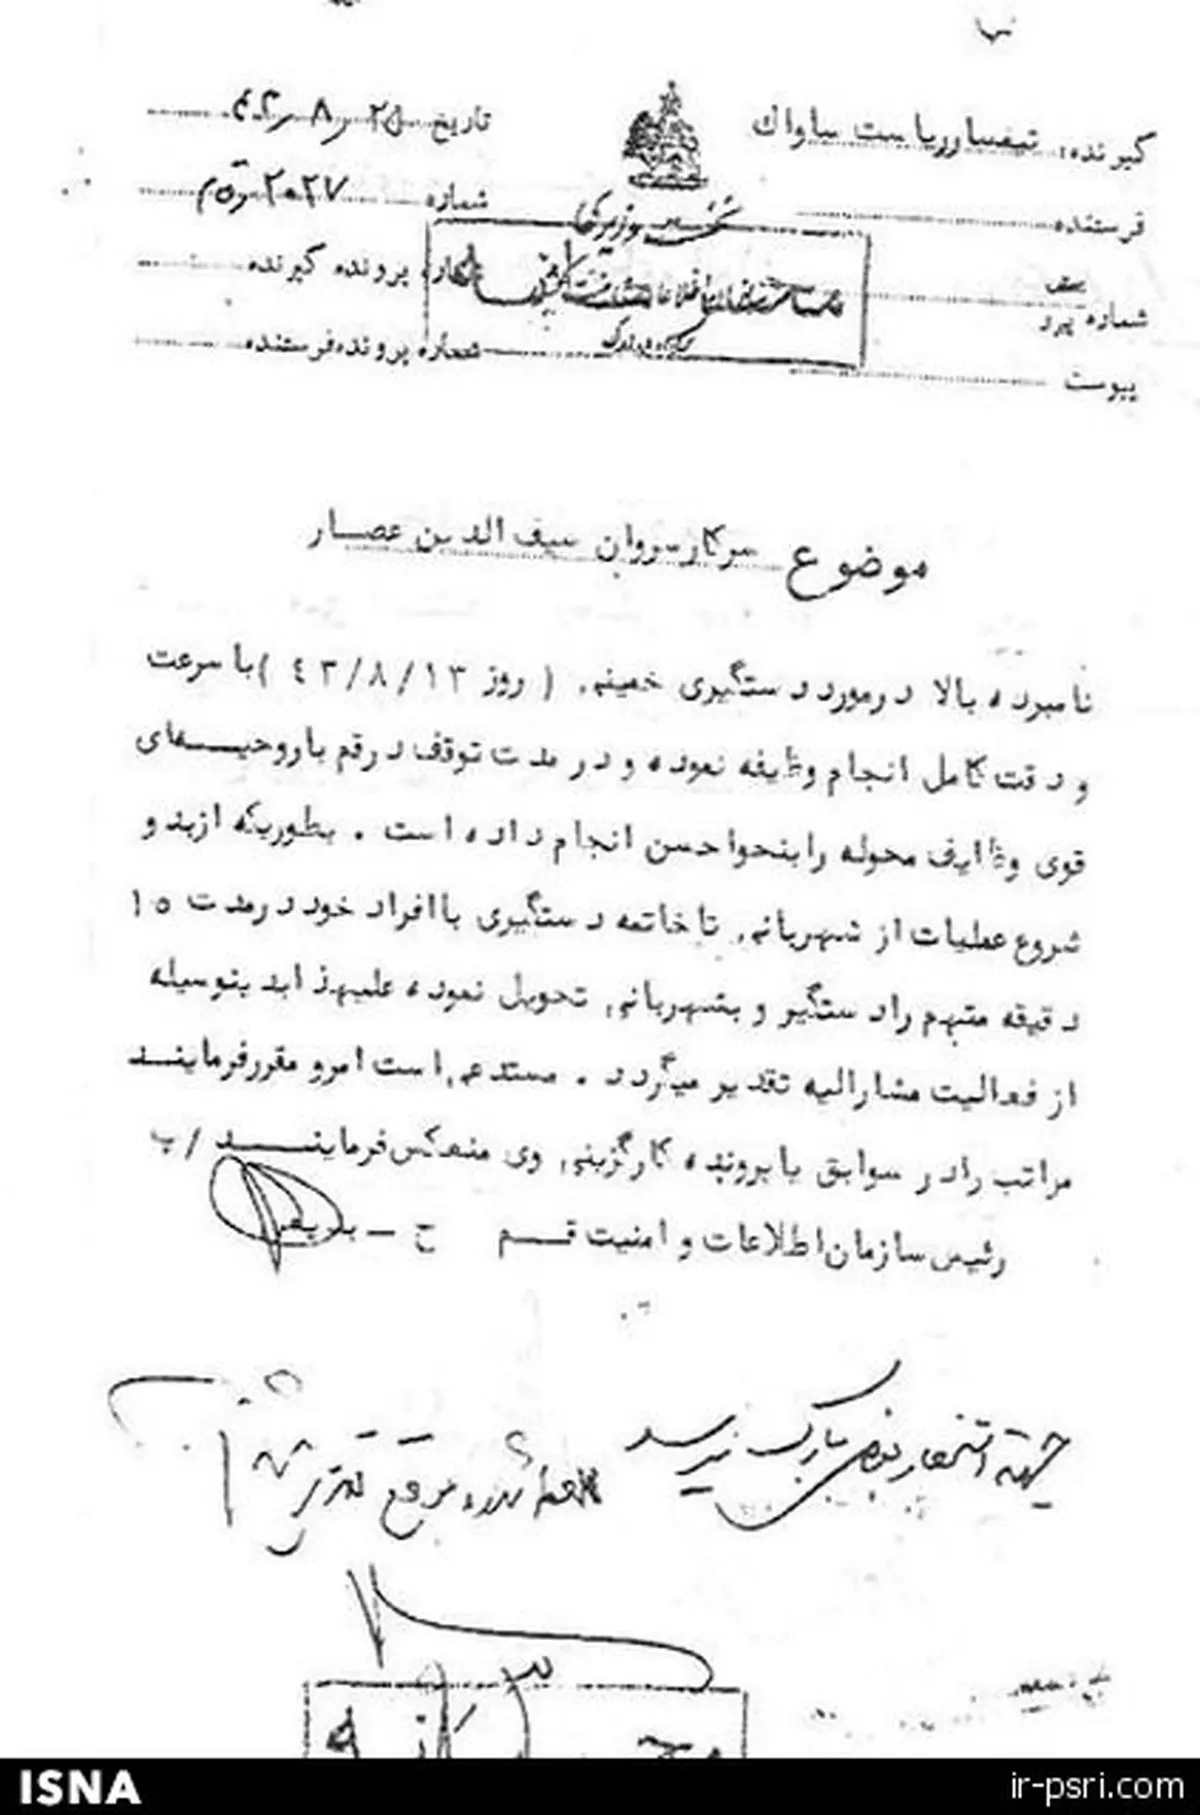 گیرنده: تیمسار ریاست ساواک
تاریخ ۴۳ر۸ر۲۵
فرستنده
شماره
نخست وزیری
شماره پرونده گیرنده
شماره
پیوست
شماره پرونده فرستنده
موضوع سرکار سروان سیف الدین عصار
نامبرده بالا در مورد دستگیری خمینی ( روز ۴۳/۸/۱۳ ) با سرعت
و دقت کامل انجام وظیفه نموده و در مدت توقف در قم با روحیه‌ای
قوی وظایف محوله را بنحو احسن انجام داده است . بطوریکه از بدو
شروع عملیات از شهربانی تا خاتمه دستگیری با افراد خود در مدت ۱۵
دقیقه متهم را دستگیر و بشهربانی تحویل نموده علیهذا بدینوسیله
از فعالیت مشارالیه تقدیر میگردد . مستدعی است امر و مقرر فرمایند
مراتب را در سوابق یا پرونده کارگزینی وی منعکس فرمایند /ب
رئیس سازمان اطلاعات و امنیت قم ح - بدیعی
محرمانه
ISNA
ir-psri.com